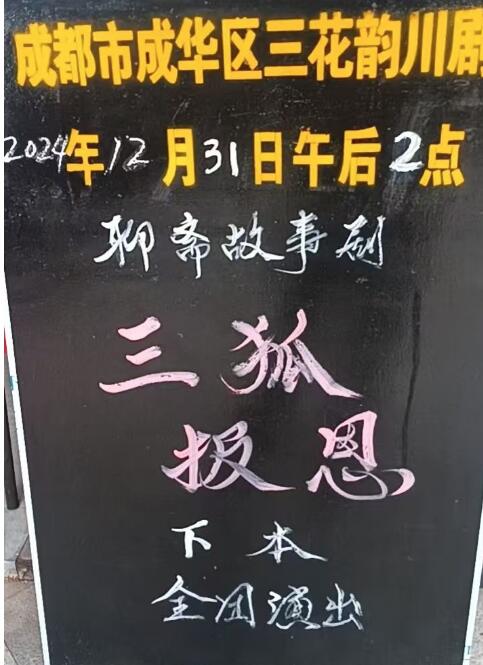 成都市成华区三花韵川剧
2024年12月31日午后2点
聊斋故事剧
三狐
报恩
下本
全团演出